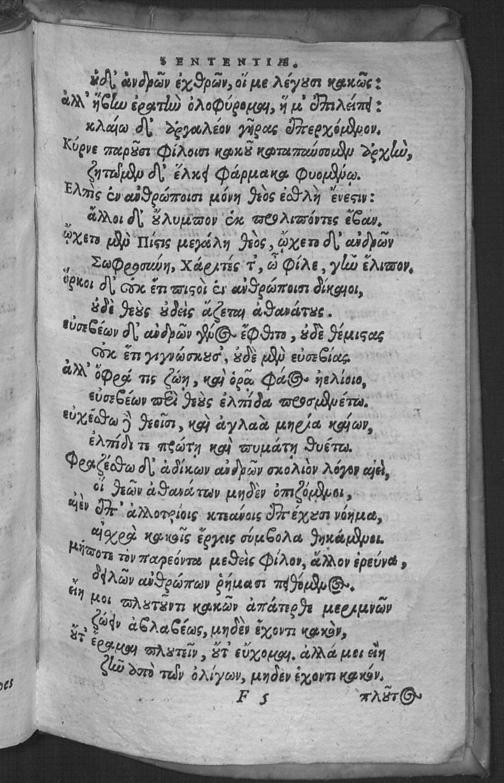 SENTENTIÆ.
οὐδ' ἀνδρῶν ἐχθρῶν, οἵ με λέγουσι κακῶς:
ἀλλ' ἥβην ἐρατὴν ὀλοφύρομαι, ἥ μ' ἐπιλείπει:
κλαίω δ' ἀργαλέον γῆρας ἐπερχόμενον.
Κύρνε παροῦσι φίλοισι κακοῦ καταπαύσομεν ἀρχὴν,
ζητῶμεν δ' ἕλκει φάρμακα φυομένῳ.
Ελπὶς ἐν ἀνθρώποισι μόνη θεὸς ἐσθλὴ ἔνεστιν:
ἄλλοι δ' οὔλυμπον ἐκ προλιπόντες ἔβαν.
ᾤχετο μὲν Πίστις μεγάλη θεὸς, ᾤχετο δ' ἀνδρῶν
Σωφροσύνη, Χάριτές τ', ὦ φίλε, γῆν ἔλιπον.
ὅρκοι δ' οὐκ ἔτι πιστοὶ ἐν ἀνθρώποισι δίκαιοι,
οὐδὲ θεοὺς οὐδεὶς ἅζεται ἀθανάτους.
εὐσεβέων δ' ἀνδρῶν γένος ἔφθιτο, οὐδὲ θέμιστας
οὐκ ἔτι γιγνώσκουσ', οὐδὲ μὲν εὐσεβίας.
ἀλλ' ὄφρά τις ζώῃ, καὶ ὁρᾷ φάος ἠελίοιο,
εὐσεβέων περὶ θεοὺς ἐλπίδα προσμενέτω.
εὐχέσθω δὲ θεοῖσι, καὶ ἀγλαὰ μηρία καίων,
ἐλπίδι τε πρώτῃ καὶ πυμάτῃ θυέτω.
Φραζέσθω δ' ἀδίκων ἀνδρῶν σκολιὸν λόγον αἰεὶ,
οἳ θεῶν ἀθανάτων μηδὲν ὀπιζόμενοι,
αἰὲν ἐπ' ἀλλοτρίοις κτεάνοις ἐπέχουσι νόημα,
αἰσχρὰ κακοῖς ἔργοις σύμβολα θηκάμενοι.
μήποτε τὸν παρεόντα μεθεὶς φίλον, ἄλλον ἐρεύνα,
δειλῶν ἀνθρώπων ῥήμασι πειθόμενος.
εἴη μοι πλουτοῦντι κακῶν ἀπάτερθε μεριμνῶν
ζώειν ἀβλαβέως, μηδὲν ἔχοντι κακὸν,
οὔτ' ἔραμαι πλουτεῖν, οὔτ' εὔχομαι. ἀλλά μοι εἴη
ζῆν ἀπὸ τῶν ὀλίγων, μηδὲν ἔχοντι κακόν.
F 5 πλοῦτος